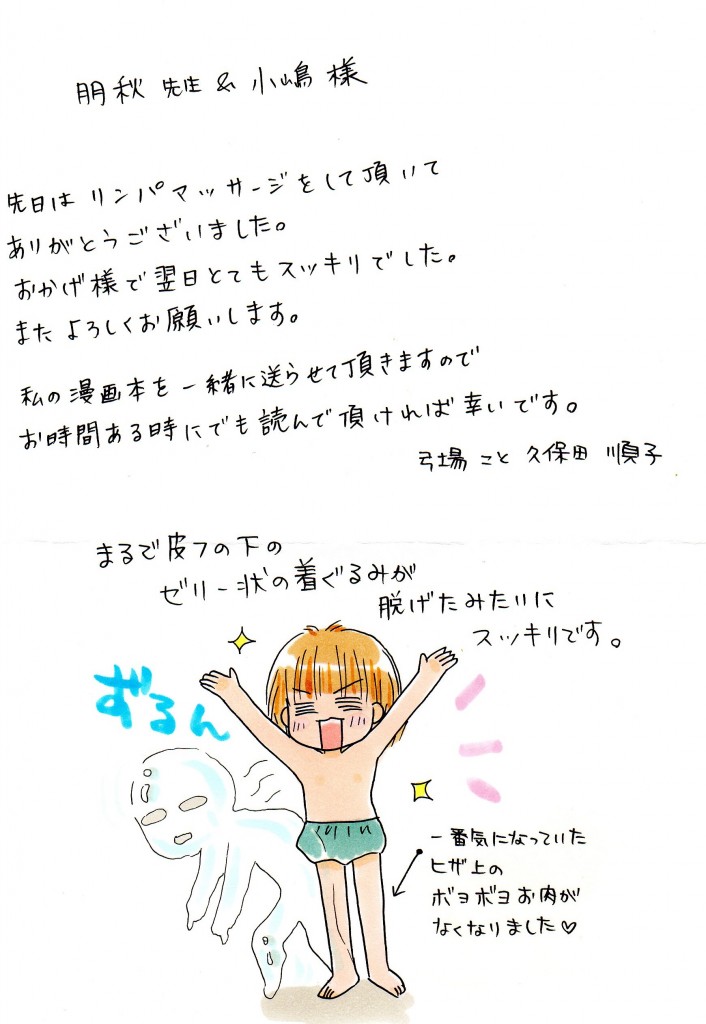 朋秋 先生 & 小嶋 様
先日は リンパマッサージをして頂いて
ありがとうございました。
おかげ様で翌日とてもスッキリでした。
また よろしくお願いします。
私の漫画本を一緒に送らせて頂きますので
お時間ある時にでも読んで頂ければ幸いです。
弓場 こと 久保田 順子
まるで皮フの下の
ゼリー状の着ぐるみが
脱げたみたいに
スッキリです。
ずるん
一番気になっていた
ヒザ上の
ボヨボヨお肉が
なくなりました♡